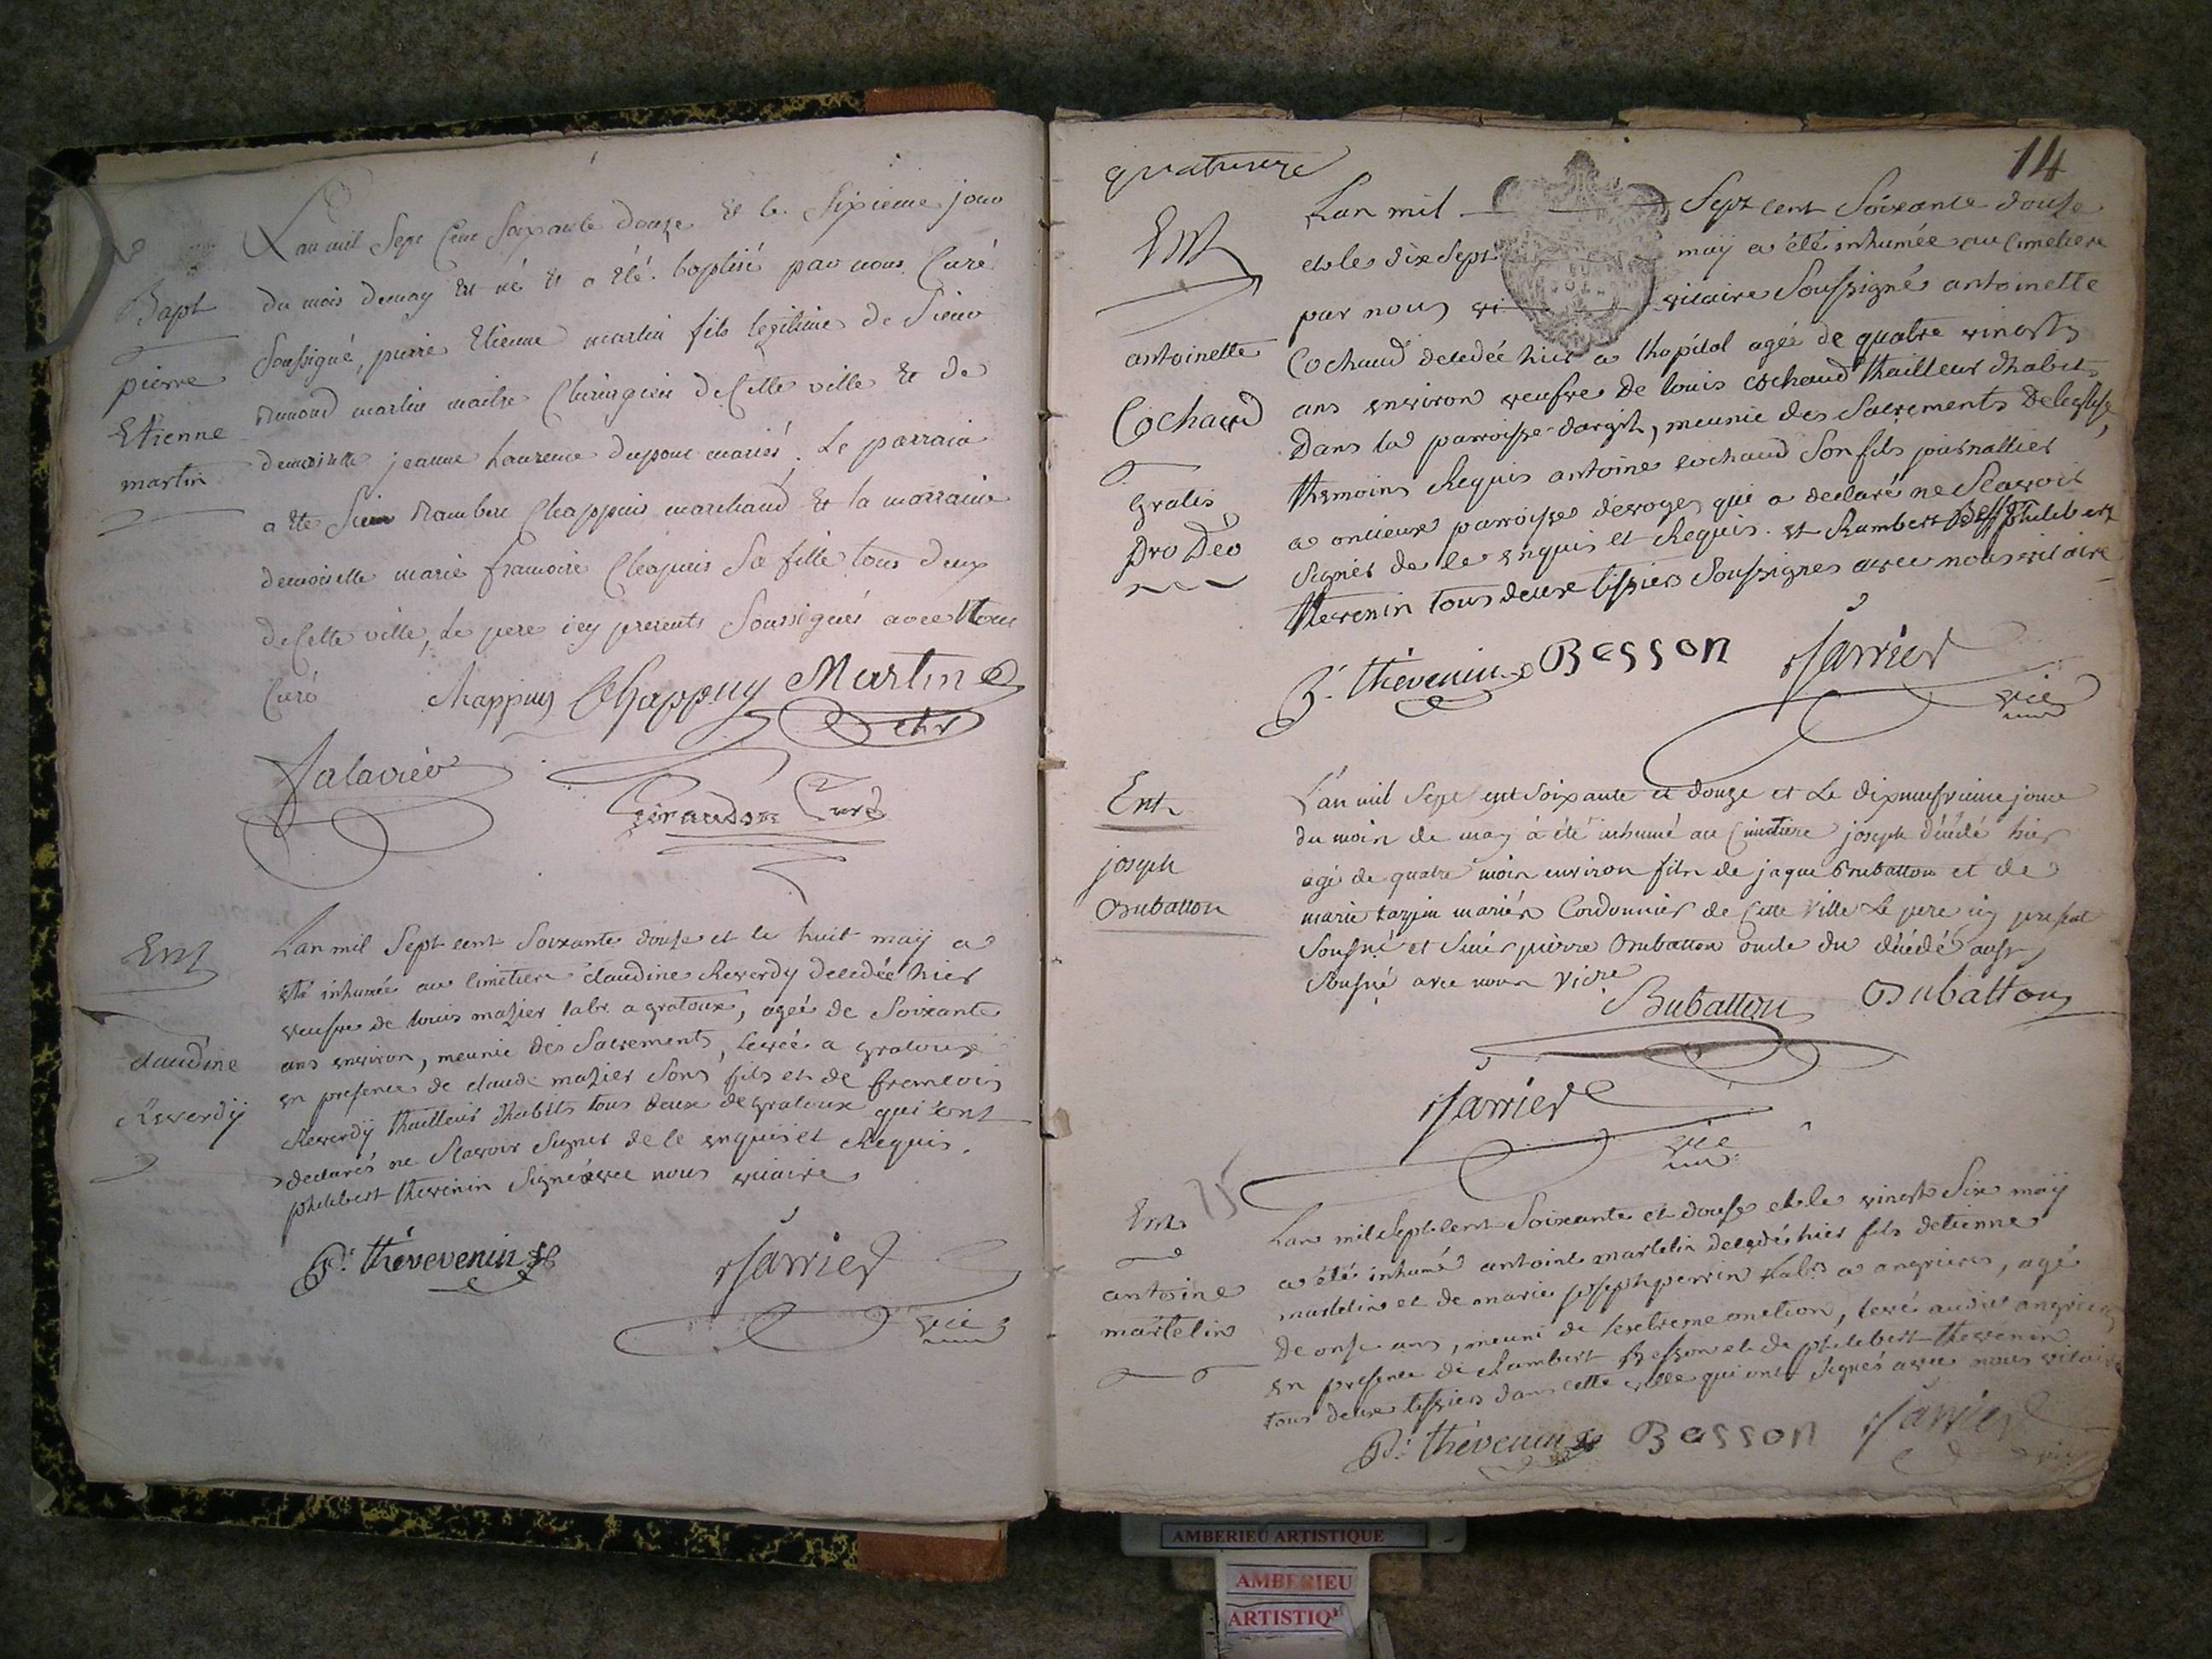 Bapt
pierre
Etienne
martin
L'an mil Sept Cent Soixante douze et le Sixieme jour
du mois de may est né et a été baptisé par nous Curé
Soussigné, pierre Etienne martin fils legitime de Sieur
martin maitre Chirurgien de Cette ville et de
demoiselle jeanne Laurence dupont mariés. Le parrain
a été Sieur Rambert Chappuis marchand et la marraine
demoiselle marie francoise Chapuis Sa fille tous deux
de Cette ville, Le pere icy presents Soussignés avec Nous
Curé
Chappuy Chappuy Martin
chr
Giraudon Curé
Ent
claudine
Reverdÿ
Lan mil Sept cent Soixante douse et le huit maÿ a
eté inhumée au Cimetiere claudine Reverdy decedée hier
veufve de louis masier labr a gratoux, agée de Soixante
ans environ, meunie des Sacrements, levée a gratoux
en presence de claude masier Sons fils et de francois
Reverdÿ thailleur dhabits tous deux de gratoux qui ont
declarés ne Scavoir Signer de le enquis et Requis.
philibert thevenin Signé avec nous vicaire
P. thévevenin
Sarrier
vic
quatorze
14
Ent
antoinette
Cochaud
gratis
Pro Déo
Lan mil Sept cent Soixante douse
et le dix Sept maÿ a été inhumée au Cimetiere
par nous vi vicaire Soussigné antoinette
Cochaud decedée hier a lhopital agée de quatre vingts
ans environ veufve de louis cochaud thailleur dhabits
Dans la parroisse dargit, meunie des Sacrements De leglise,
themoins Requis antoine cochaud Son fils journallier
a oncieux parroisse devoges qui a declaré ne Scavoir
Signer de le enquis et Requis. et Rambert Bess philibert
thevenin tous deux tissiers Soussignes avec nous vicaire
P. thévenin Besson Sarrier
vic
Ent
joseph
Bubatton
L'an mil Sept cent Soixante et douze et Le dixneufvieme jour
du mois de may à été inhumé au Cimetiere joseph décédé hier
agé de quatre mois environ fils de jaque Bubatton et de
marie mariés Cordonnier de Cette ville Le pere icy present
Sousné et Sieur pierre Bubatton oncle du décédé aussy
Sousné avec nous Vicre
Bubatton Bubatton
Sarrier
vic
Ent
antoine
martelin
Lan mil Sept cent Soixante et douse et le vingt Six maÿ
a été inhumé antoine martelin decedé hier fils detienne
martelin et de marie joseph perrin labrs a angrieres, agé
de onse ans, meuni de lextreme onction, levé audit angrieres
en presence de Rambert Besson et de philibert thevenin
tous deux tissiers dans cette ville qui ont Signés avec nous vicaire
P. thévenin Besson Sarrier
AMBERIEU ARTISTIQUE
AMBERIEU
ARTISTIQ